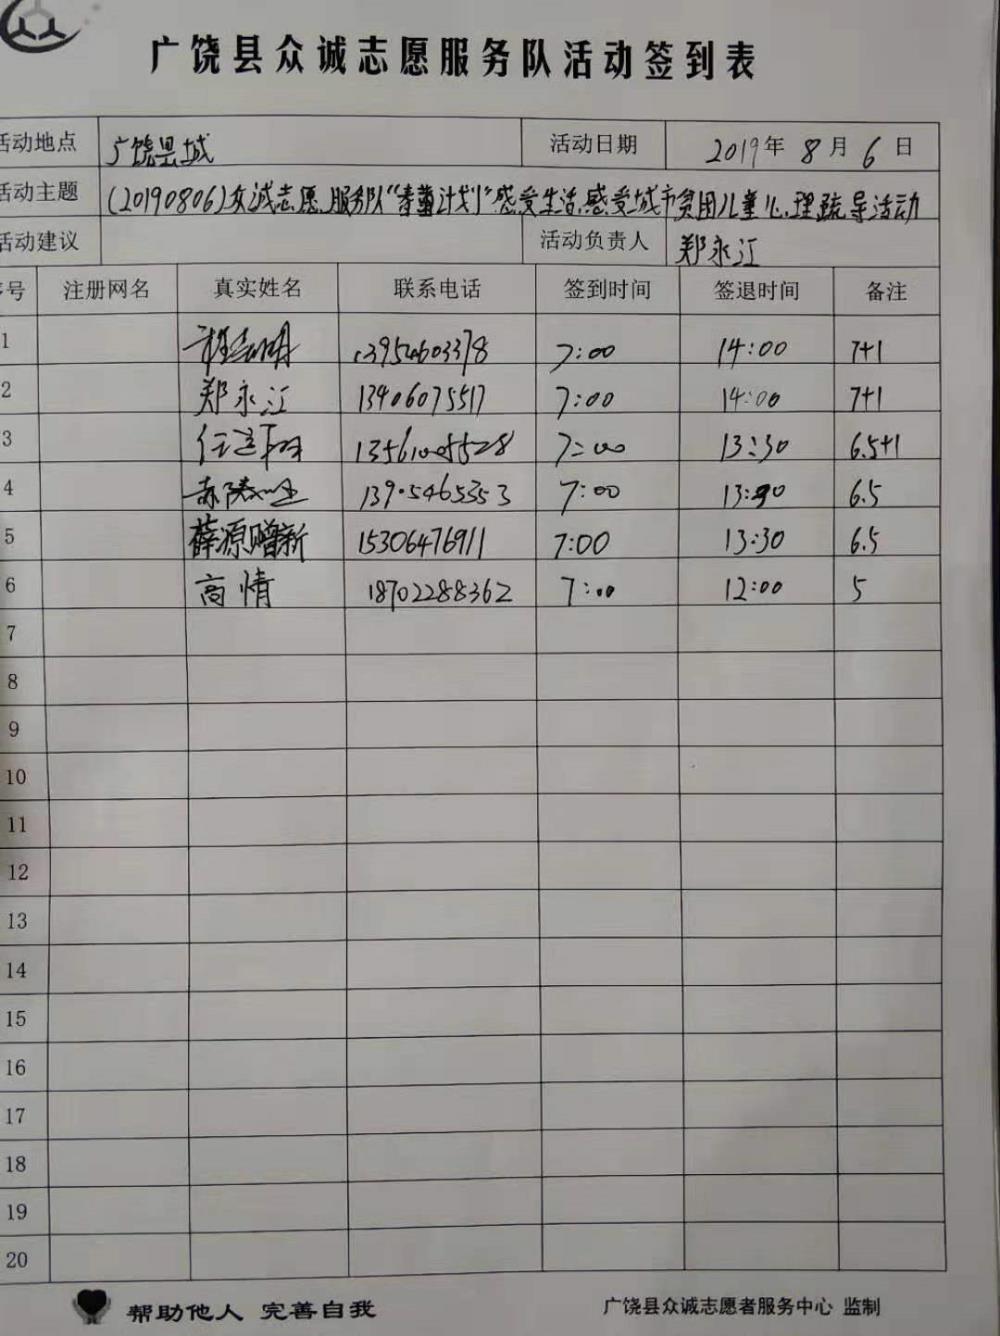 广饶县众诚志愿服务队活动签到表
活动地点 广饶县城 活动日期 2019年 8月 6日
活动主题 (20190806)众诚志愿服务队"春蕾计划"感受生活,感受城市贫困儿童心理疏导活动
活动建议 活动负责人 郑永江
序号 注册网名 真实姓名 联系电话 签到时间 签退时间 备注
1 13954603378 7:00 14:00 7+1
2 郑永江 13406075517 7:00 14:00 7+1
3 13561005528 7:00 13:30 6.5+1
4 13905465353 7:00 13:30 6.5
5 薛源赠新 15306476911 7:00 13:30 6.5
6 高情 18702288362 7:00 12:00 5
7
8
9
10
11
12
13
14
15
16
17
18
19
20
帮助他人 完善自我 广饶县众诚志愿者服务中心 监制